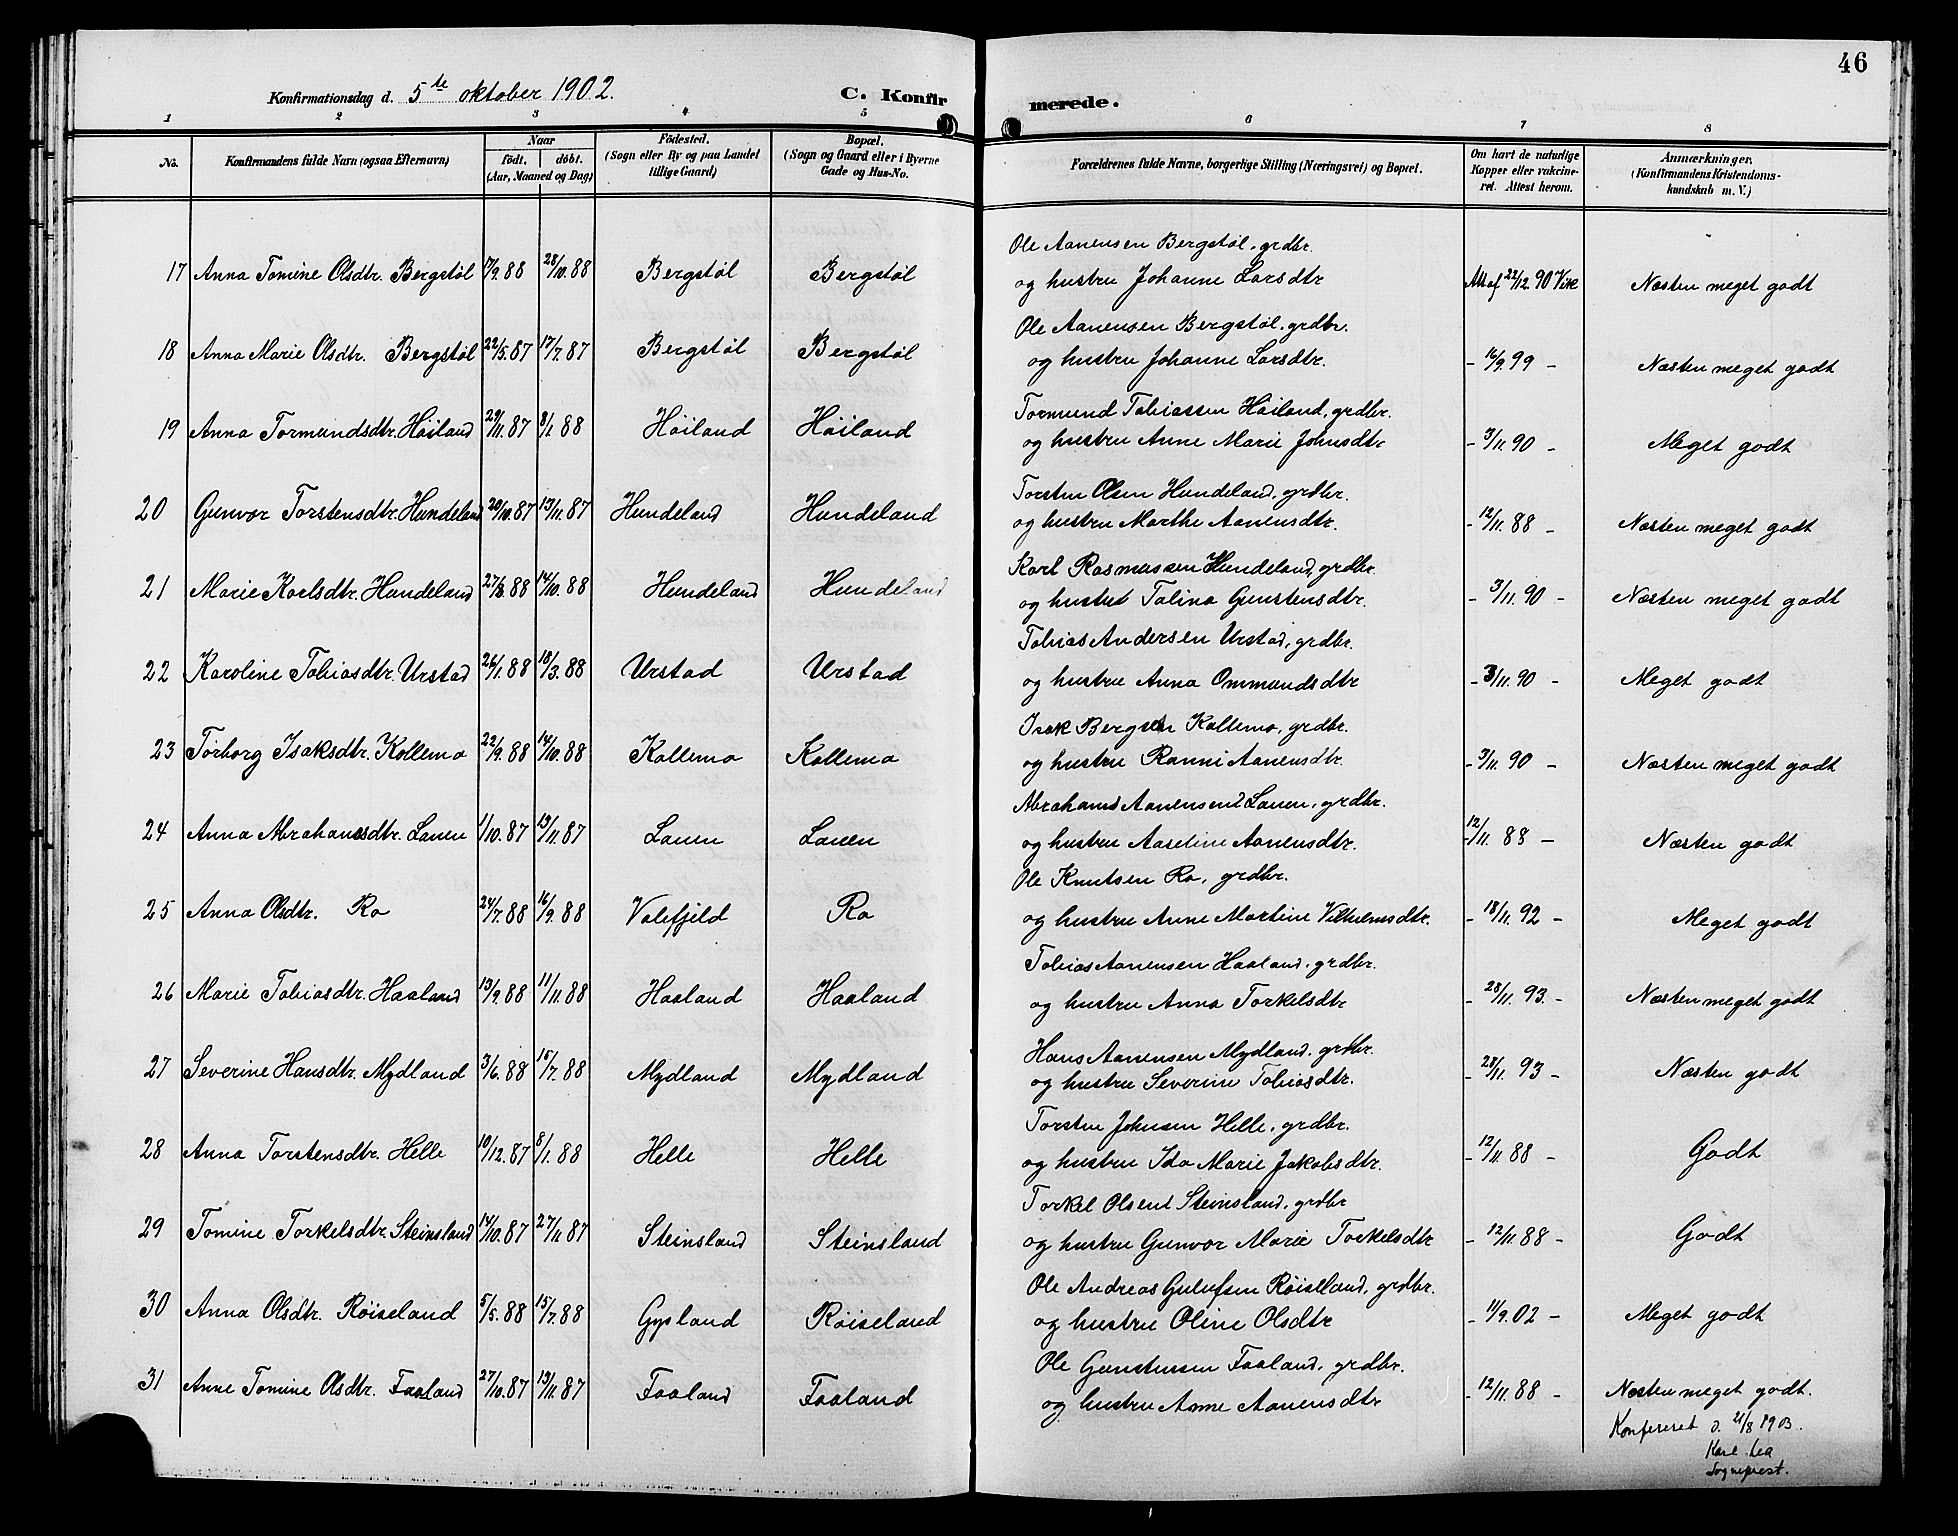 46
Konfirmationsdag d. 5te oktober 1902.
C. Konfirmerede.
1 2 3 4 5 6 7 8
No. | Konfirmandens fulde Navn (ogsaa Efternavn) | Naar födt. döbt. (Aar, Maaned og Dag) | Födested. (Sogn eller By og paa Landet tillige Gaard) | Bopæl. (Sogn og Gaard eller i Byerne Gade og Hus-No. | Forældrenes fulde Navne, borgerlige Stilling (Næringsvei) og Bopæl. | Om havt de naturlige Kopper eller vakcineret. Attest herom. | Anmærkninger. (Konfirmandens Kristendomskundskab m. V.)
Ole Aanensen Bergstøl, grdbr.
17 Anna Tomine Olsdtr. Bergstøl 17/9.88 28/10.88 Bergstøl Bergstøl og hustru Johanne Larsdtr Att af 22/12.90 Næsten meget godt
Ole Aanensen Bergstøl, grdbr.
18 Anna Marie Olsdtr. Bergstøl 22/5.87 17/7.87 Bergstøl Bergstøl og hustru Johanne Larsdtr. - 16/9.99 - Næsten meget godt
Tormund Tobiassen Höiland, grdbr.
19 Anna Tormundsdtr. Höiland 29/11.87 8/1.88 Höiland Höiland og hustru Anne Marie Johnsdtr - 3/11.90 - Meget godt
Torsten Olsen Hundeland, grdbr.
20 Gunvor Torstensdtr. Hundeland 20/10.87 13/11.87 Hundeland Hundeland og hustru Marthe Aanensdtr. - 12/11.88 - Næsten meget godt
Karl Rasmussen Hundeland, grdbr
21 Marie Karlsdtr. Hundeland 27/8.88 14/10.88 Hundeland Hundeland og hustru Talina Gunstensdtr. - 3/11.90 - Næsten meget godt
Tobias Andersen Urstad, grdbr.
22 Karoline Tobiasdtr. Urstad 26/1.88 18/3.88 Urstad Urstad og hustru Anna Ommundsdtr - 3/11.90 - Meget godt
Isak Bergsen Kallemo, grdbr.
23 Torborg Isaksdtr. Kollemo 22/9.88 14/10.88 Kallemo Kollemo og hustru Ranni Aanensdtr. - 3/11.90 - Næsten meget godt
Abraham Aanensen Lauen, grdbr.
24 Anna Abrahamsdtr. Lauen 1/10.87 13/11.87 Lauen Lauen og hustru Aaseline Aanensdtr. - 12/11.88 - Næsten godt
Ole Knutsen Ra, grdbr.
25 Anna Olsdtr. Ra 24/7.88 16/9.88 Valefjeld Ra og hustru Anne Martine Vilhelmsdtr. - 18/11.92 - Meget godt
Tobias Aanensen Haaland, grdbr.
26 Marie Tobiasdtr. Haaland 13/9.88 11/11.88 Haaland Haaland og hustru Anna Torkelsdtr - 28/11.93. - Næsten meget godt
Hans Aanensen Mydland, grdbr.
27 Severine Hansdtr. Mydland 3/6.88 15/7.88 Mydland Mydland og hustru Severine Tobiasdtr. - 28/11.93 - Næsten godt
Torsten Johnsen Helle, grdbr.
28 Anna Torstensdtr. Helle 10/12.87 8/1.88 Helle Helle og hustru Ida Marie Jakobsdtr. - 12/11.88 - Godt
Torkel Olsen Steinsland, grdbr
29 Tomine Torkelsdtr. Steinsland 14/10.87 27/11.87 Steinsland Steinsland og hustru Gunvor Marie Torkelsdtr - 12/11.88 - Godt
Ole Andreas Gulufsen Røiseland, grdbr.
30 Anna Olsdtr. Røiseland 5/5.88 15/7.88 Gysland Røiseland og hustru Oline Olsdtr - 11/9.02 - Meget godt
Ole Gunstensen Faaland, grdbr.
31 Anne Tomine Olsdtr. Faaland 27/10.87 13/11.87 Faaland Faaland og hustru Anne Aanensdtr - 12/11.88 - Næsten meget godt.
Konfereret d. 21/8 1903.
Karl Lea
Sogneprest.